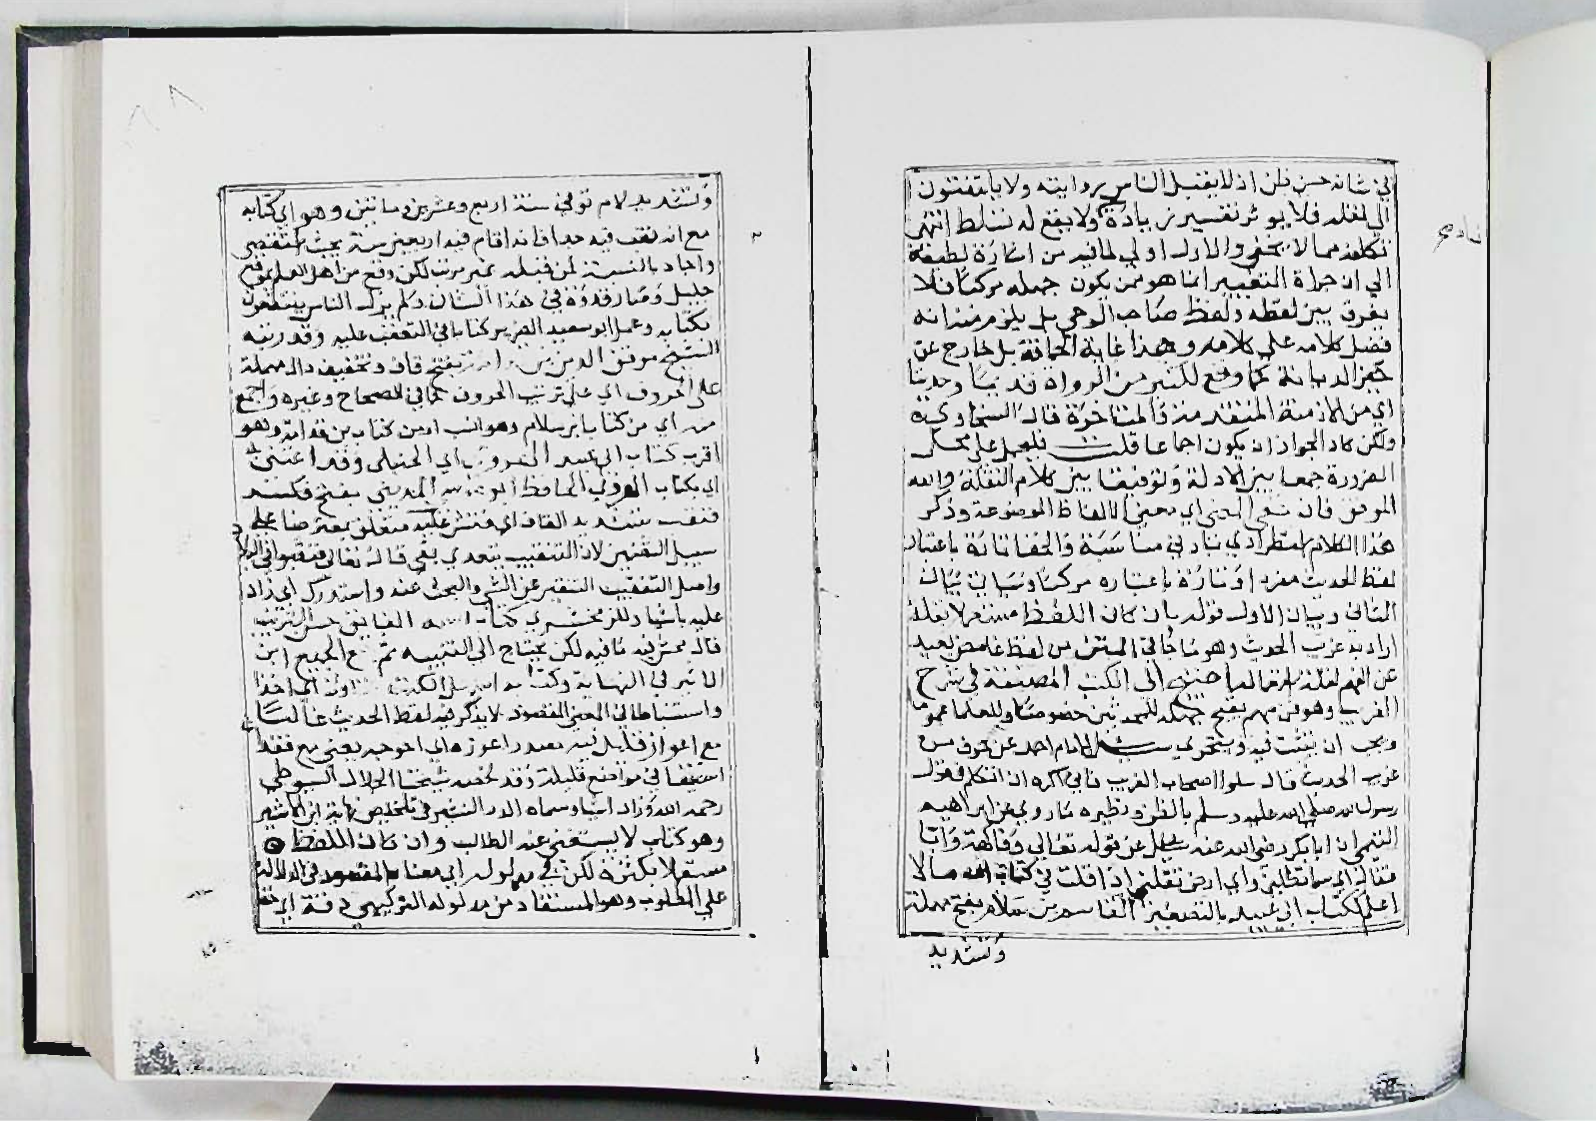 في شانه حسن ظن اذ لا يقبل الناس روايته ولا يلتفتون
الي نقله فلا يوثر تفسيره زيادة ولا يقع له تسلط انتهى
تكلفه مما لا يخفي والاول اولي لما فيه من اشارة لطيفة
الي ان جراة التغيير انما هو ممن يكون جهله مركبا فلا
يفرق بين لفظه ولفظ صاحب الوحي بل يلزم منه انه
فضل كلامه علي كلامه وهذا غاية الحماقة بل خارج عن
حيز الديانة كما وقع لكثير من الرواه قديما وحديثا
اي من الازمنة المتقدمة والمتاخرة قال السخاوي
ولكن كاد الجواز ان يكون اجماعا قلت فليحمل علي محل
الضرورة جمعا بين الادلة وتوفيقا بين كلام النقلة والله
الموفق فان خفي المعني اي معني الالفاظ الموضوعة وذكر
هذا الكلام استطرادي مناسبة والخفا تارة باعتبار
لفظ الحديث مفردا وتارة باعتباره مركبا وسياتي بيان
الثاني وبيان الاول قوله بان كان اللفظ مستعملا بقلة
اراد به غريب الحديث وهو ما جا في المتن من لفظ غامض بعيد
عن الفهم لقلة استعماله احتيج الي الكتب المصنفة في شرح
الغريب وهو فن مهم يقبح جهله للمحدثين خصوصا وللعلما عموما
ويجب ان يتثبت فيه ويتحري سئل الامام احمد عن حرف من
غريب الحديث فقال سلوا اصحاب الغريب فاني اكره ان اتكلم في قول
رسول الله صلي الله عليه وسلم بالظن ونظيره ما روي عن ابراهيم
التيمي ان ابا بكر رضي الله عنه سئل عن قوله تعالي وفاكهة وابا
فقال اي سما تظلني واي ارض تقلني اذا قلت في كتاب الله ما لا
اعلم ككتاب ابي عبيد بالتصغير القاسم بن سلام بفتح مهملة
وتشديد
وتشديد لام توفي سنة اربع وعشرين وماتين وهو اي كتابه
مع انه تعب فيه جدا فانه اقام فيه اربعين سنة بحيث استقصي
واجاد بالنسبة لمن قبله غير مرتب لكن وقع من اهل العلم بموقع
جليل وصار قدوة في هذا الشان ولم يزل الناس ينتفعون
بكتابه وعمل ابو سعيد الضرير كتابا في التعقب عليه وقد رتبه
الشيخ موفق الدين بن قدامة بفتح قاف وتخفيف دال مهملة
علي الحروف اي علي ترتيب الحروف كما في الصحاح وغيره واجمع
منه اي من كتاب ابن سلام وهو انسب او من كتاب بن قدامة وهو
اقرب كتاب ابي عبيد الهروي اي الحنبلي وقد اعتني به
اي بكتاب الهروي الحافظ ابو موسي المديني بفتح فكسر
فنقب بتشديد القاف اي فتش عليه متعلق بمعترضا علي
سبيل التضمين لان التنقيب يتعدي بفي قال تعالي فنقبوا في البلاد
واصل التنقيب التنقير عن الشي والبحث عنه واستدرك اي زاد
عليه باشيا وللزمخشري كتاب اسمه الفايق حسن الترتيب
قال بعضهم فيه ما فيه لكن يحتاج الي التنبيه ثم جمع الجميع ابن
الاثير في النهاية وكتابه اسهل الكتب تناولا اي اخذا
واستنباطا في المعني المقصود لا يذكر فيه لفظ الحديث غالبا
مع اعواز قليل فيه مصدر اعوزه اي احوجه يعني مع فقد
استيفا في مواضع قليلة وقد لخصه شيخنا الجلال السيوطي
رحمه الله وزاد اشيا وسماه الدر النثير في تلخيص نهاية ابن الاثير
وهو كتاب لا يستغني عنه الطالب وان كان اللفظ
مستعملا بكثرة لكن في مدلوله اي معناه المقصود في الدلالة
علي المطلوب وهو المستفاد من مدلوله التركيبي دقة اي خفا